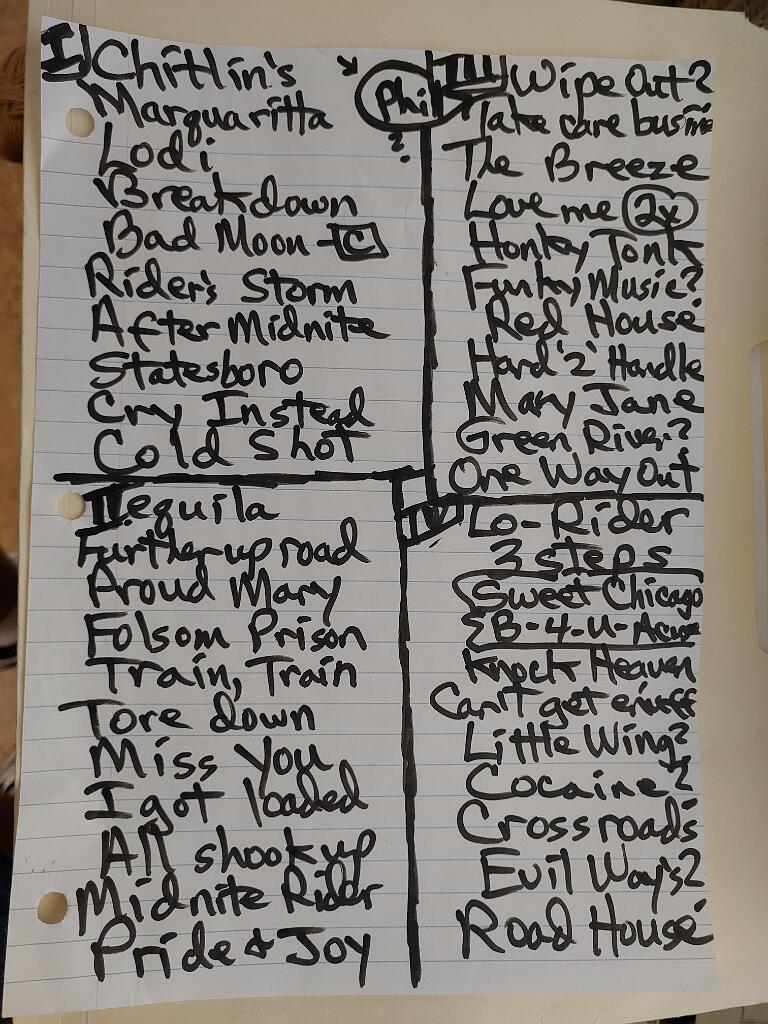 I Chitlin's
Marquaritta
Lodi
Breakdown
Bad Moon - C
Rider's Storm
After Midnite
Statesboro
Cry Instead
Cold Shot
II Tequila
Further up road
Proud Mary
Folsom Prison
Train, Train
Tore down
Miss You
I got loaded
All shook up
Midnite Rider
Pride & Joy
Phil
?
III Wipe Out?
Take care busine
The Breeze
Love me 2x
Honky Tonk
Funky Music?
Red House
Hard '2' Handle
Mary Jane
Green River?
One Way Out
IV Lo-Rider
3 steps
Sweet Chicago
B-4-U-Acuse
Knock Heaven
Can't get enuff
Little Wing?
Cocaine?
Crossroads
Evil Way's?
Road House